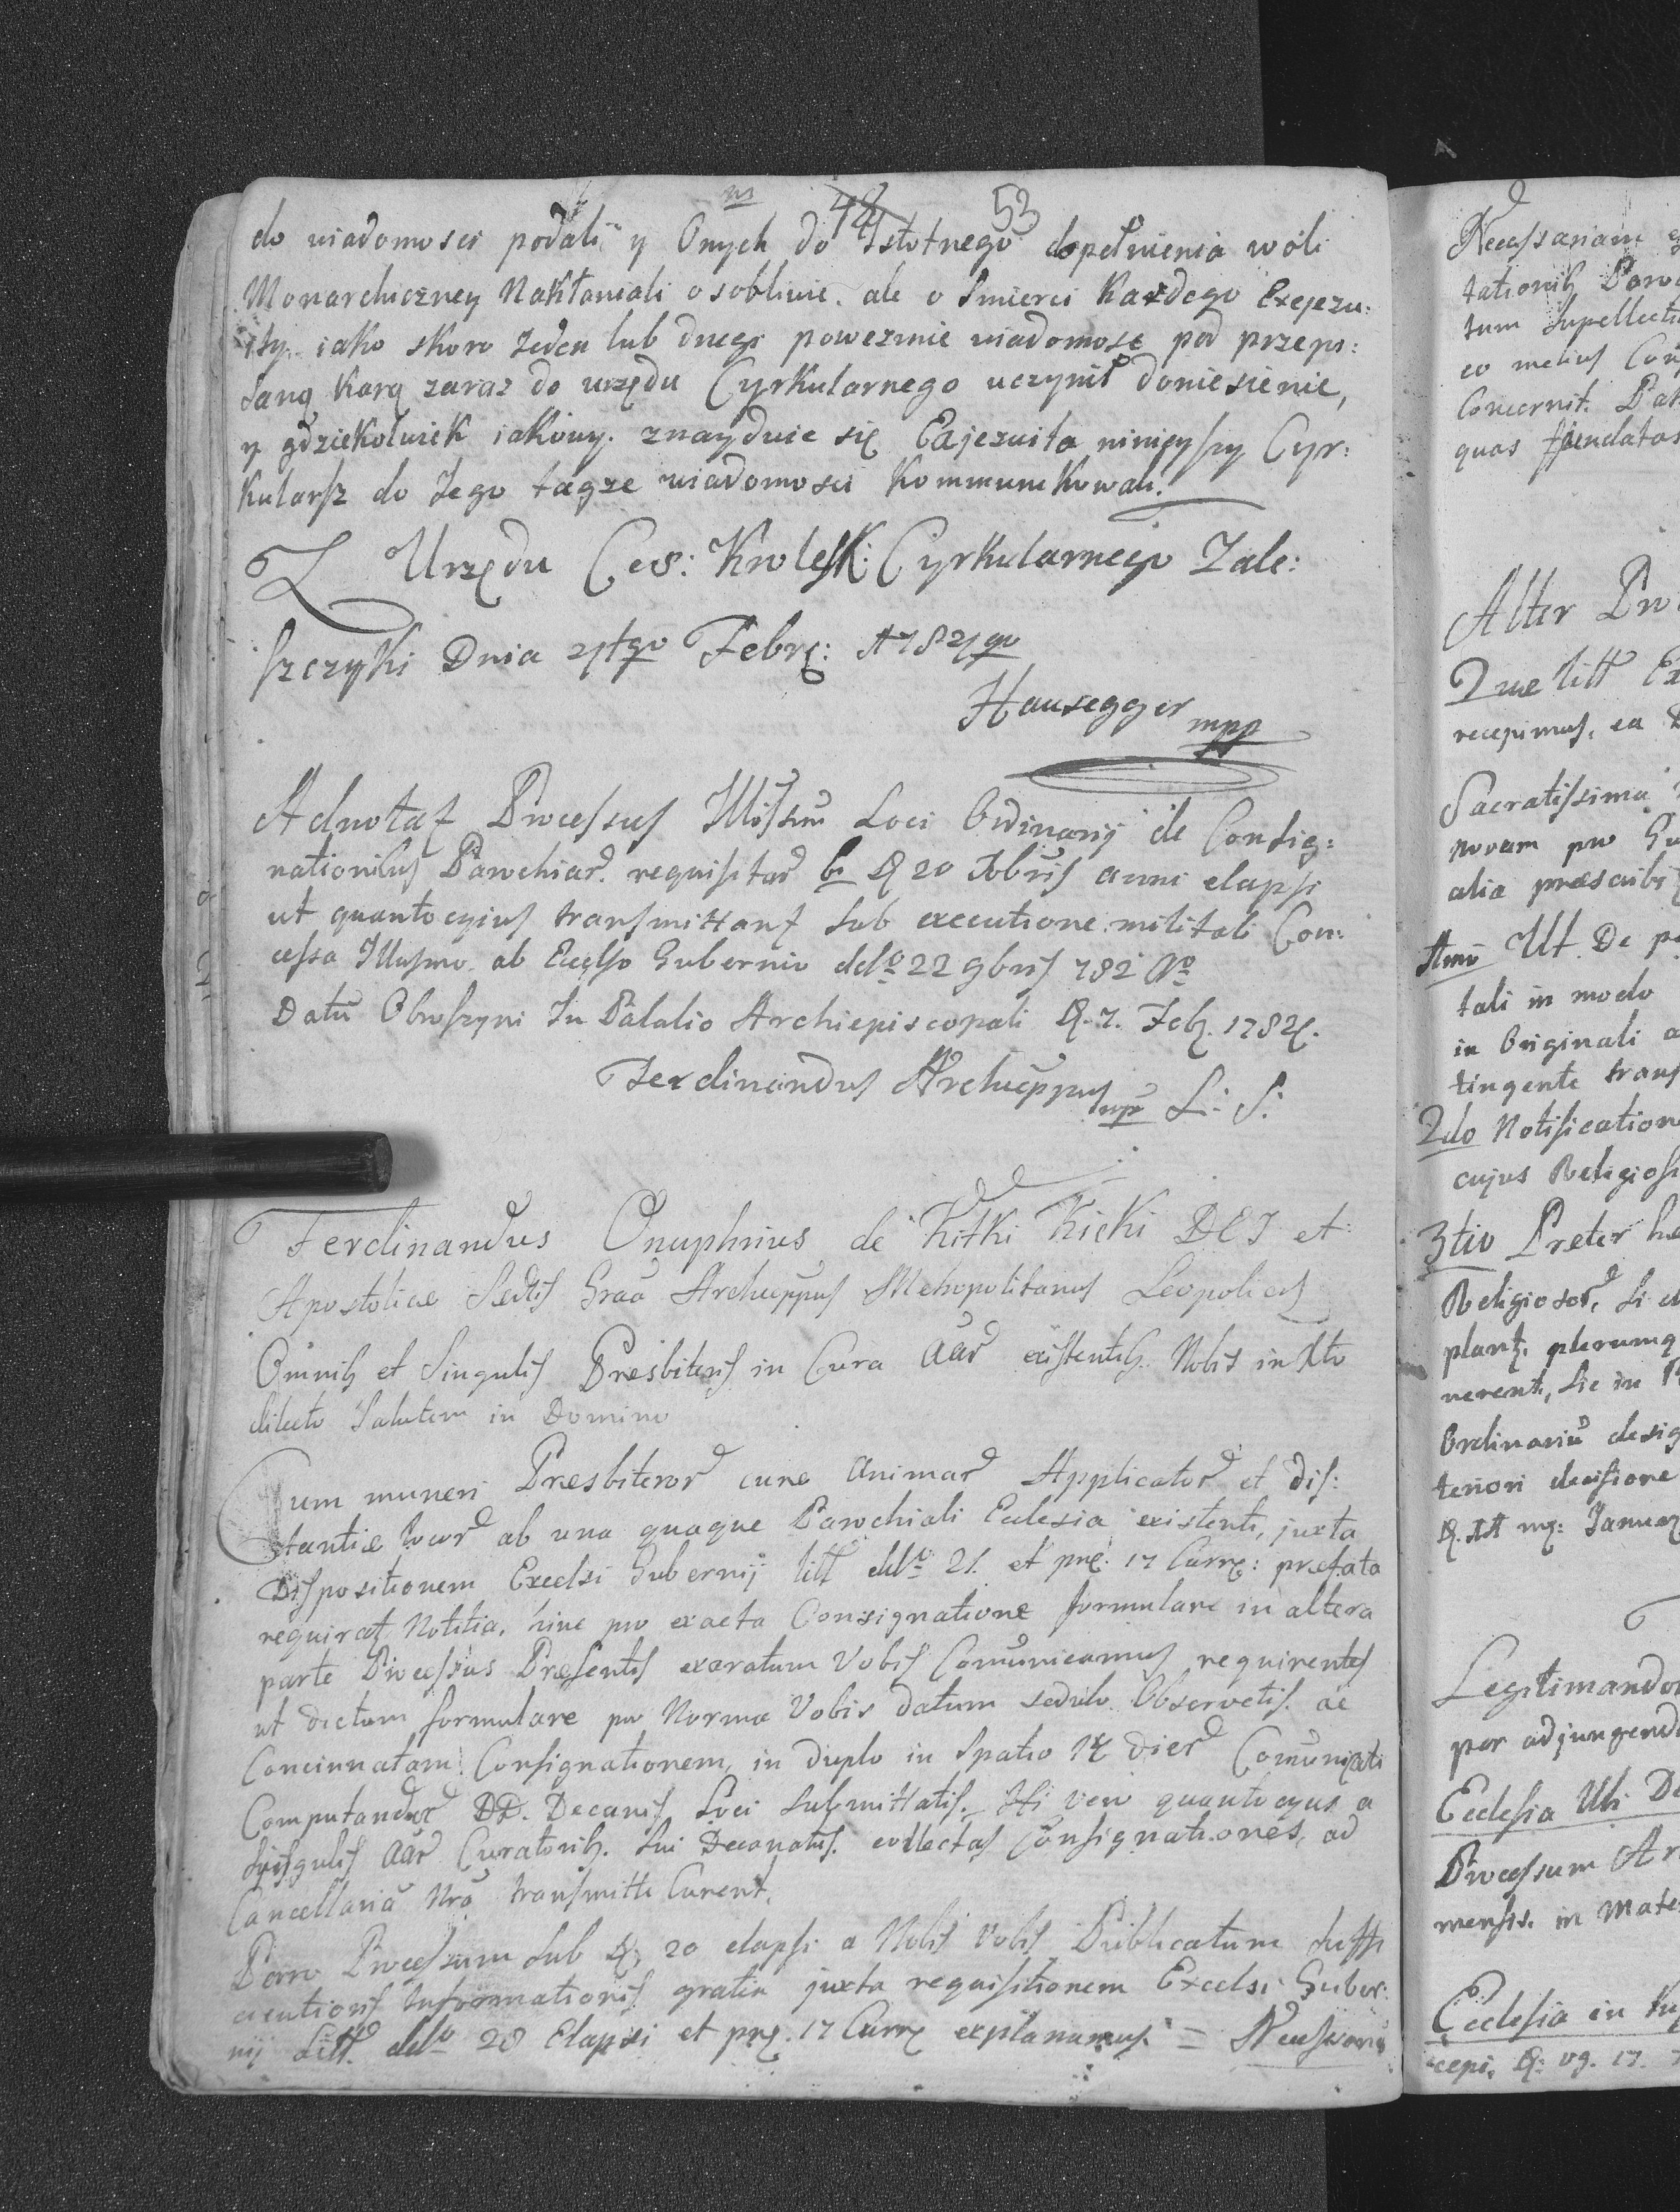 48 53
do wiadomosci podali y Onych do Istotnego dopełnienia woli
Monarchiczney Nakłaniali osobliwie. ale o Smierci Każdego Exejezu:
ity iako skoro Jeden lub drugi powezmie wiadomosc pod przepi:
saną Karą zaraz do urzędu Cyrkularnego uczynił doniesienie,
y gdziekolwiek iakowy. znayduie się Exjezuita ninieyszy Cyr:
Kularsz do Jego tagze wiadomosci Kommunikowali.
Z Urzędu Ces: Krolesk: Cyrkularnego Zale:
szczyki Dnia Febr:
Hausegger mpp
Adnotat Processus Illissimi Loci Ordinarij de Consig:
nationibus Parochiar. requisitar 20 Xbris anni elapsi
ut quantocyius transmittant sub executione militali Con:
cessa Illusmo ab Excelso Gubernio ddto 22 9bris 782
Datu Obroszyni In Palatio Archiepiscopali D. 7. Feb. 178
Ferdinandus Archieppus mp L: S:
Ferdinandus Onuphrius de Kitki Kicki DEI et
Apostolicae Sedis Graa Archieppus Metropolitanus Leopolien
Omnib et Singulis Presbiteris in Cura aar existentib. Nobis in Xto
dilecto Salutem in Domino
Cum muneri Presbiteror cure Animar Applicator et dis:
tantiæ locor ab una quaque Parochiali Eclesia existenti, juxta
Dispositionem Excelsi Gubernij litt ddto 21. et pre: 17 Curre: prefata
requirat Notitia. hinc pro exacta Consignatione formulare in altera
parte Processus Presentis exaratum Vobis Comunicamus requirentes
ut dictum formulare pro Norma Vobis datum sedulo Observetis. ac
Concinnatam Consignationem, in duplo in Spatio 14 dier Comunicati
Computandor DD. Decanis Loci submittatis. Hi vero quantocyus a
singulis aar Curatorib. sui Decanatus. collectas Consignationes, ad
Cancellariā Nrā transmitti Curent.
Porro Processum sub D. 20 elapsi a Nobis Vobis Publicatum suffi
cientioris Informationis gratia juxta requisitionem Excelsi Guber:
nij Litt. ddto 28 Elapsi et pre. 17 Curre explanamus. =
Necessariam
tationib Paro
tum Supellecti
eo melius Con
Concernit. Pat
quas fundatas
Alter Pro
Quæ litt Ex
recepimus, ea
Sacratissima
novam pro Gu
alia præscribi
Ut De p
tali in modo
in Originali a
tingente trans
2do Notification
cujus Religios
3tio Preter h
Religiosor, si
plant. plerumq
nerent, sic in
Ordinariū desig
teriori decisione
Januar
Legitimandor
per adjungend
Ecclesia Ubi De
Processum Ar
mensis. in Mate
Ecclesia in
cepi. 17.